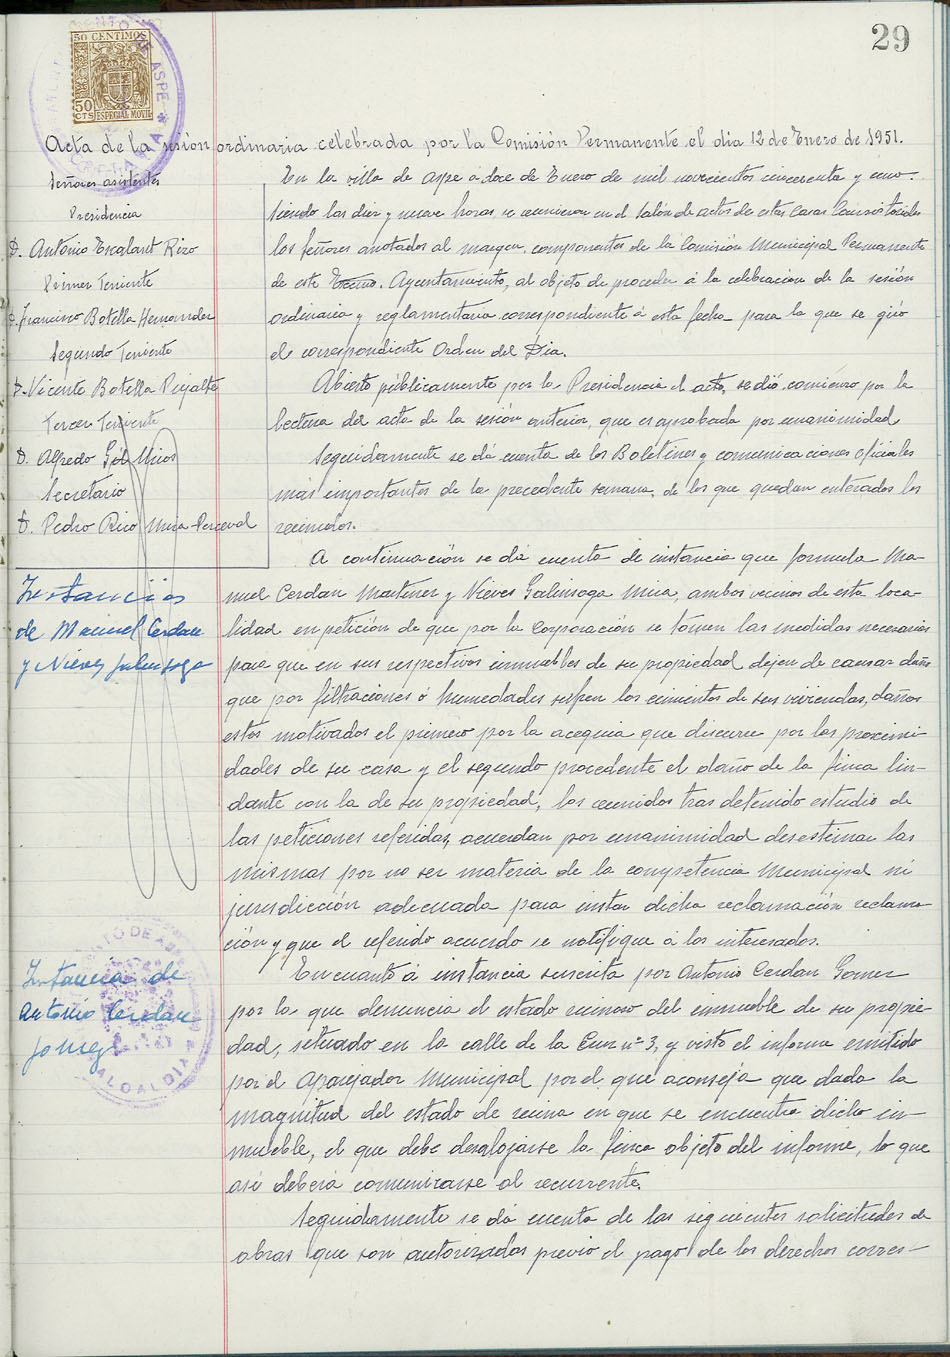 29
50 CENTIMOS
50
CTS ESPECIAL MOVIL
Acta de la sesión ordinaria celebrada por la Comisión Permanente el día 12 de Enero de 1951.
Señores asistentes
Presidencia
D. Antonio Escalant Rizo
Primer Teniente
D. Francisco Botella Hernandez
Segundo Teniente
D. Vicente Botella Pujalte
Tercer Teniente
D. Alfredo Gil
Secretario
D. Pedro Rico Mira-Perceval
En la villa de Aspe a doce de Enero de mil novecientos cincuenta y uno.
Siendo las diez y nueve horas se reunieron en el Salón de actos de estas Casas Consistoriales
los señores anotados al margen, componentes de la Comisión Municipal Permanente
de este Excmo. Ayuntamiento, al objeto de proceder á la celebración de la sesión
ordinaria y reglamentaria correspondiente á esta fecha para la que se giró
el correspondiente Orden del Dia.
Abierto públicamente por la Presidencia el acto, se dió comienzo por la
lectura del acta de la sesión anterior, que es aprobada por unanimidad
Seguidamente se dá cuenta de los Boletines y comunicaciones oficiales
más importantes de la precedente semana, de los que quedan enterados los
reunidos.
Instancias
de Manuel Cerdan
y Nieves Galinsoga
A continuación se dá cuenta de instancia que formula Ma-
nuel Cerdan Martinez y Nieves Galinsoga Mira, ambos vecinos de esta loca-
lidad en petición de que por la Corporación se tomen las medidas necesarias
para que en sus respectivos inmuebles de su propiedad dejen de causar daño
que por filtraciones ó humedades sufren los cimientos de sus viviendas, daños
estos motivados el primero por la acequia que discurre por las proximi-
dades de su casa y el segundo procedente el daño de la finca lin-
dante con la de su propiedad, los reunidos tras detenido estudio de
las peticiones referidas, acuerdan por unanimidad desestimar las
mismas por no ser materia de la competencia Municipal ni
jurisdicción adecuada para instar dicha reclamación reclama-
ción y que el referido acuerdo se notifique á los interesados.
Instancia de
Antonio Cerdan
Gomez
En cuanto á instancia suscrita por Antonio Cerdan Gomez
por la que denuncia el estado ruinoso del inmueble de su propie-
dad, situado en la calle de la Cruz nº 3, y visto el informe emitido
por el Aparejador Municipal por el que aconseja que dada la
magnitud del estado de ruina en que se encuentra dicho in-
mueble, el que debe desalojarse la finca objeto del informe, lo que
así deberá comunicarse al recurrente.
Seguidamente se dá cuenta de las siguientes solicitudes de
obras que son autorizadas previo el pago de los derechos corres-